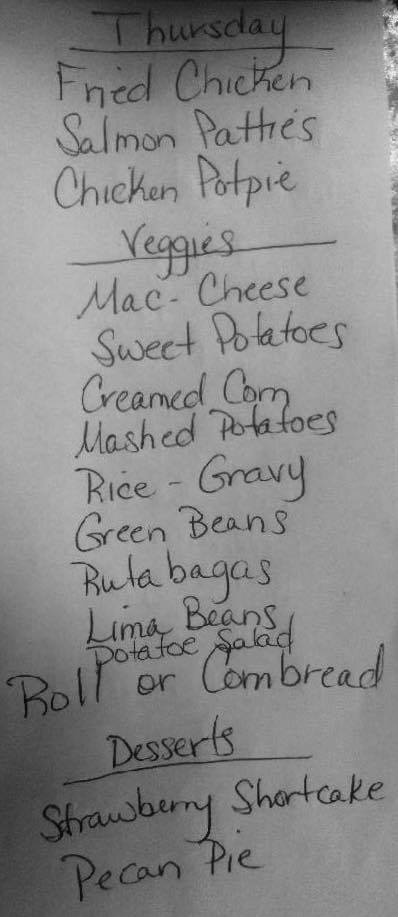 Thursday
Fried Chicken
Salmon Patties
Chicken Potpie
Veggies
Mac - Cheese
Sweet Potatoes
Creamed Corn
Mashed Potatoes
Rice - Gravy
Green Beans
Rutabagas
Lima Beans
Potatoe Salad
Roll or Cornbread
Desserts
Strawberry Shortcake
Pecan Pie